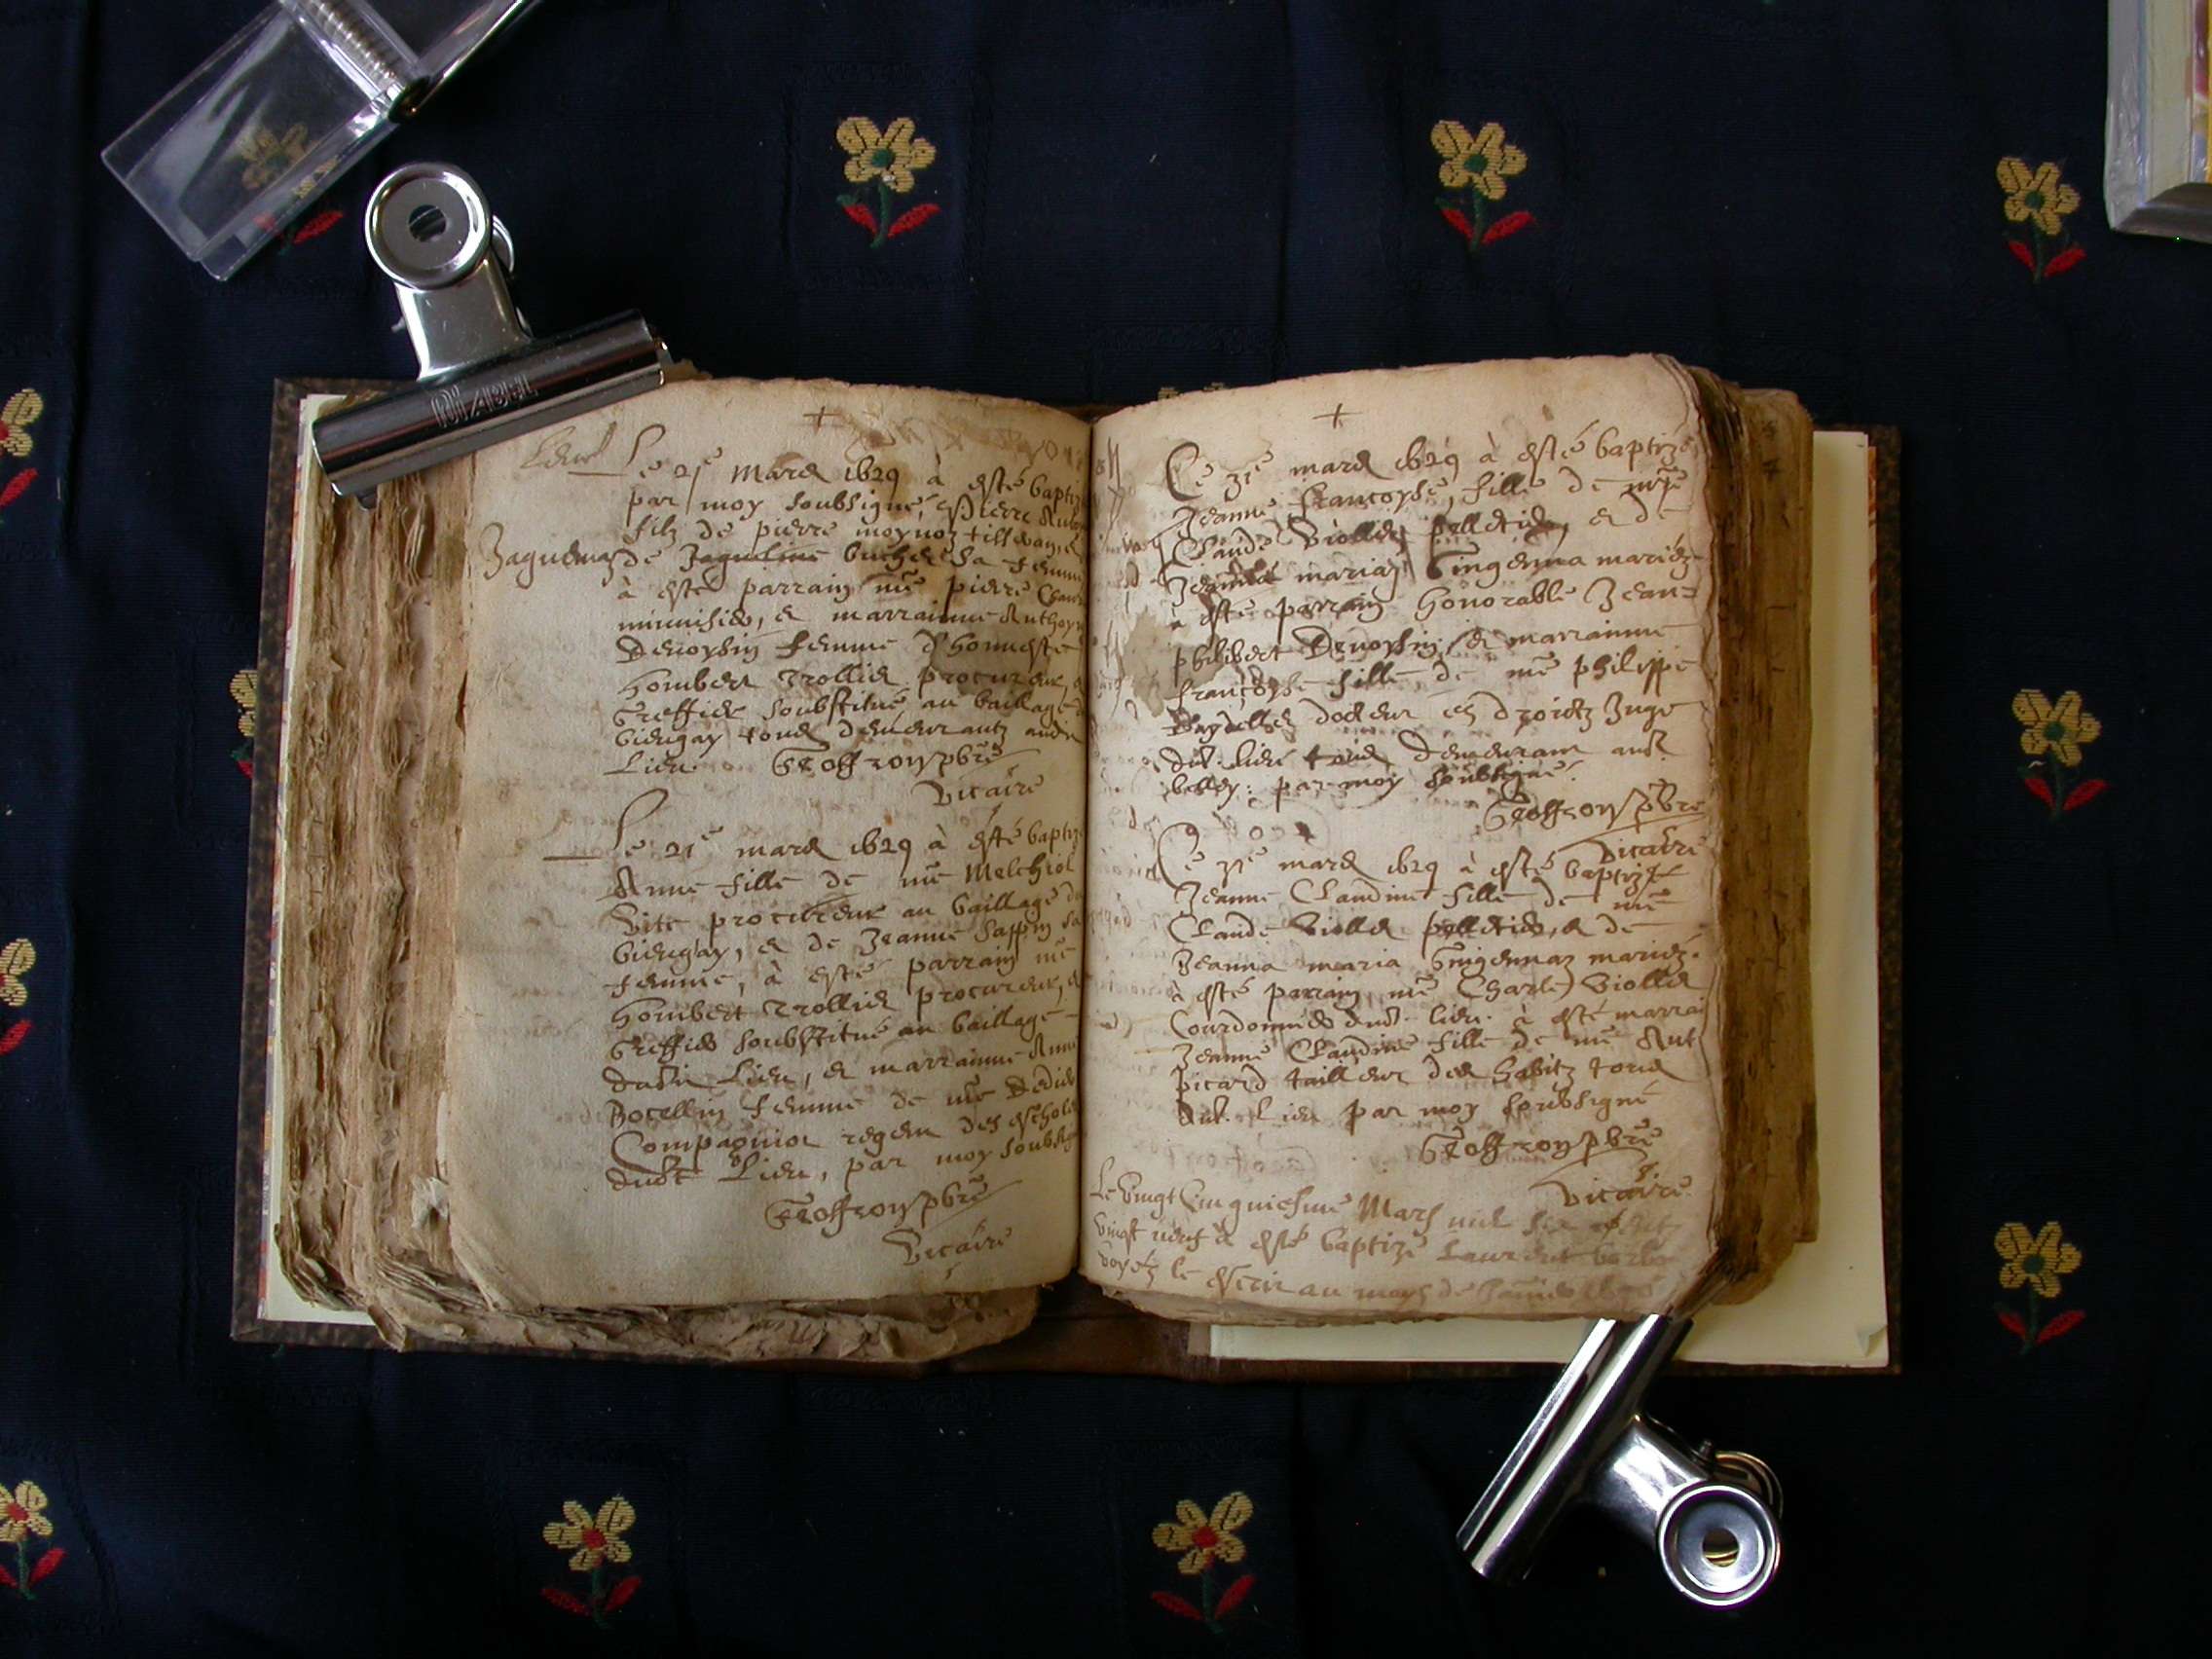 Le 21e mars 1629 à esté baptiz
par moy soubsigné, Pierre
filz de pierre moynoz tissoran, &
Jaquemaz de Jaqueline buchet sa femme
à esté parrain me pierre
minuisier, et marrainne Anthoyn
Devoysin femme d'honneste
Hombert Trollier procureur, &
Greffier soubstitué au bailliage
bieugay tous demeurantz audit
Lieu. Geoffroy pbre
Vicaire
Le 21e mars 1629 à esté baptiz
Anne fille de me Melchiol
Vite procureur au bailliage du
bieugay, et de Jeanne Sappin sa
femme, à esté parrain me
Hombert Trollier procureur, &
Greffier soubstitué au bailliage
dudit Lieu, et marrainne Anne
Bocellin femme de me Dedier
Compagnion regent des eschole
dudt Lieu, par moy soubsig
Geoffroy pbre
Vicaire
Ce 31e mars 1629 à esté baptizé
Jeanne françoyse, fille de me
Claude Viollet pelletier, et de
Jeanna maria Gingenna mariéz
à esté parrain honorable Jean=
philibert Devoysin, et marrainne
françoyse fille de me philippe
docteur es droictz Juge
dud. lieu tous demeurant aud.
belley: par moy soubsigné.
Geoffroy pbre
Vicaire
Ce 31e mars 1629 à esté baptizé
Jeanne Claudine fille de me
Claude Viollet pelletier, & de
Jeanna maria Gingennaz mariéz.
à esté parrain me Charles Viollet
Courdonnier dud. lieu. à esté marrai
Jeanne Claudine fille de me Ant
picard tailleur des habitz tous
dud. Lieu par moy soubsigné
Geoffroy pbre
Vicaire
Le Vingt Cinquiesme Mars mil six centz
Vingt neuf à esté baptizé Laurent
voyez le escrit au moys de